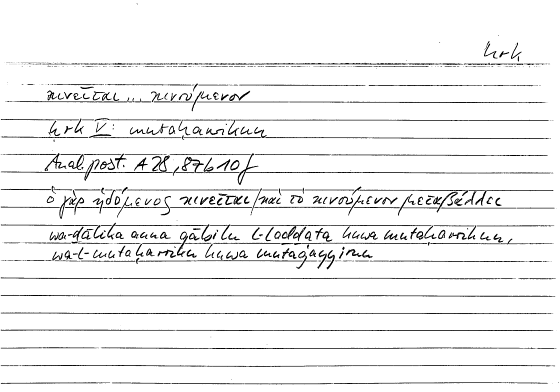 ḥrk
κινεῖται ... κινούμενον
ḥrk V: mutaḥarrikun
Anal. post. A 28, 87b10f
ὁ γὰρ ἡδόμενος κινεῖται / καὶ τὸ κινούμενον μεταβάλλει
wa-ḏālika anna qābilu l-laḏḏata huwa mutaḥarrikun,
wa-l-mutaḥarriku huwa mutaġayyirun